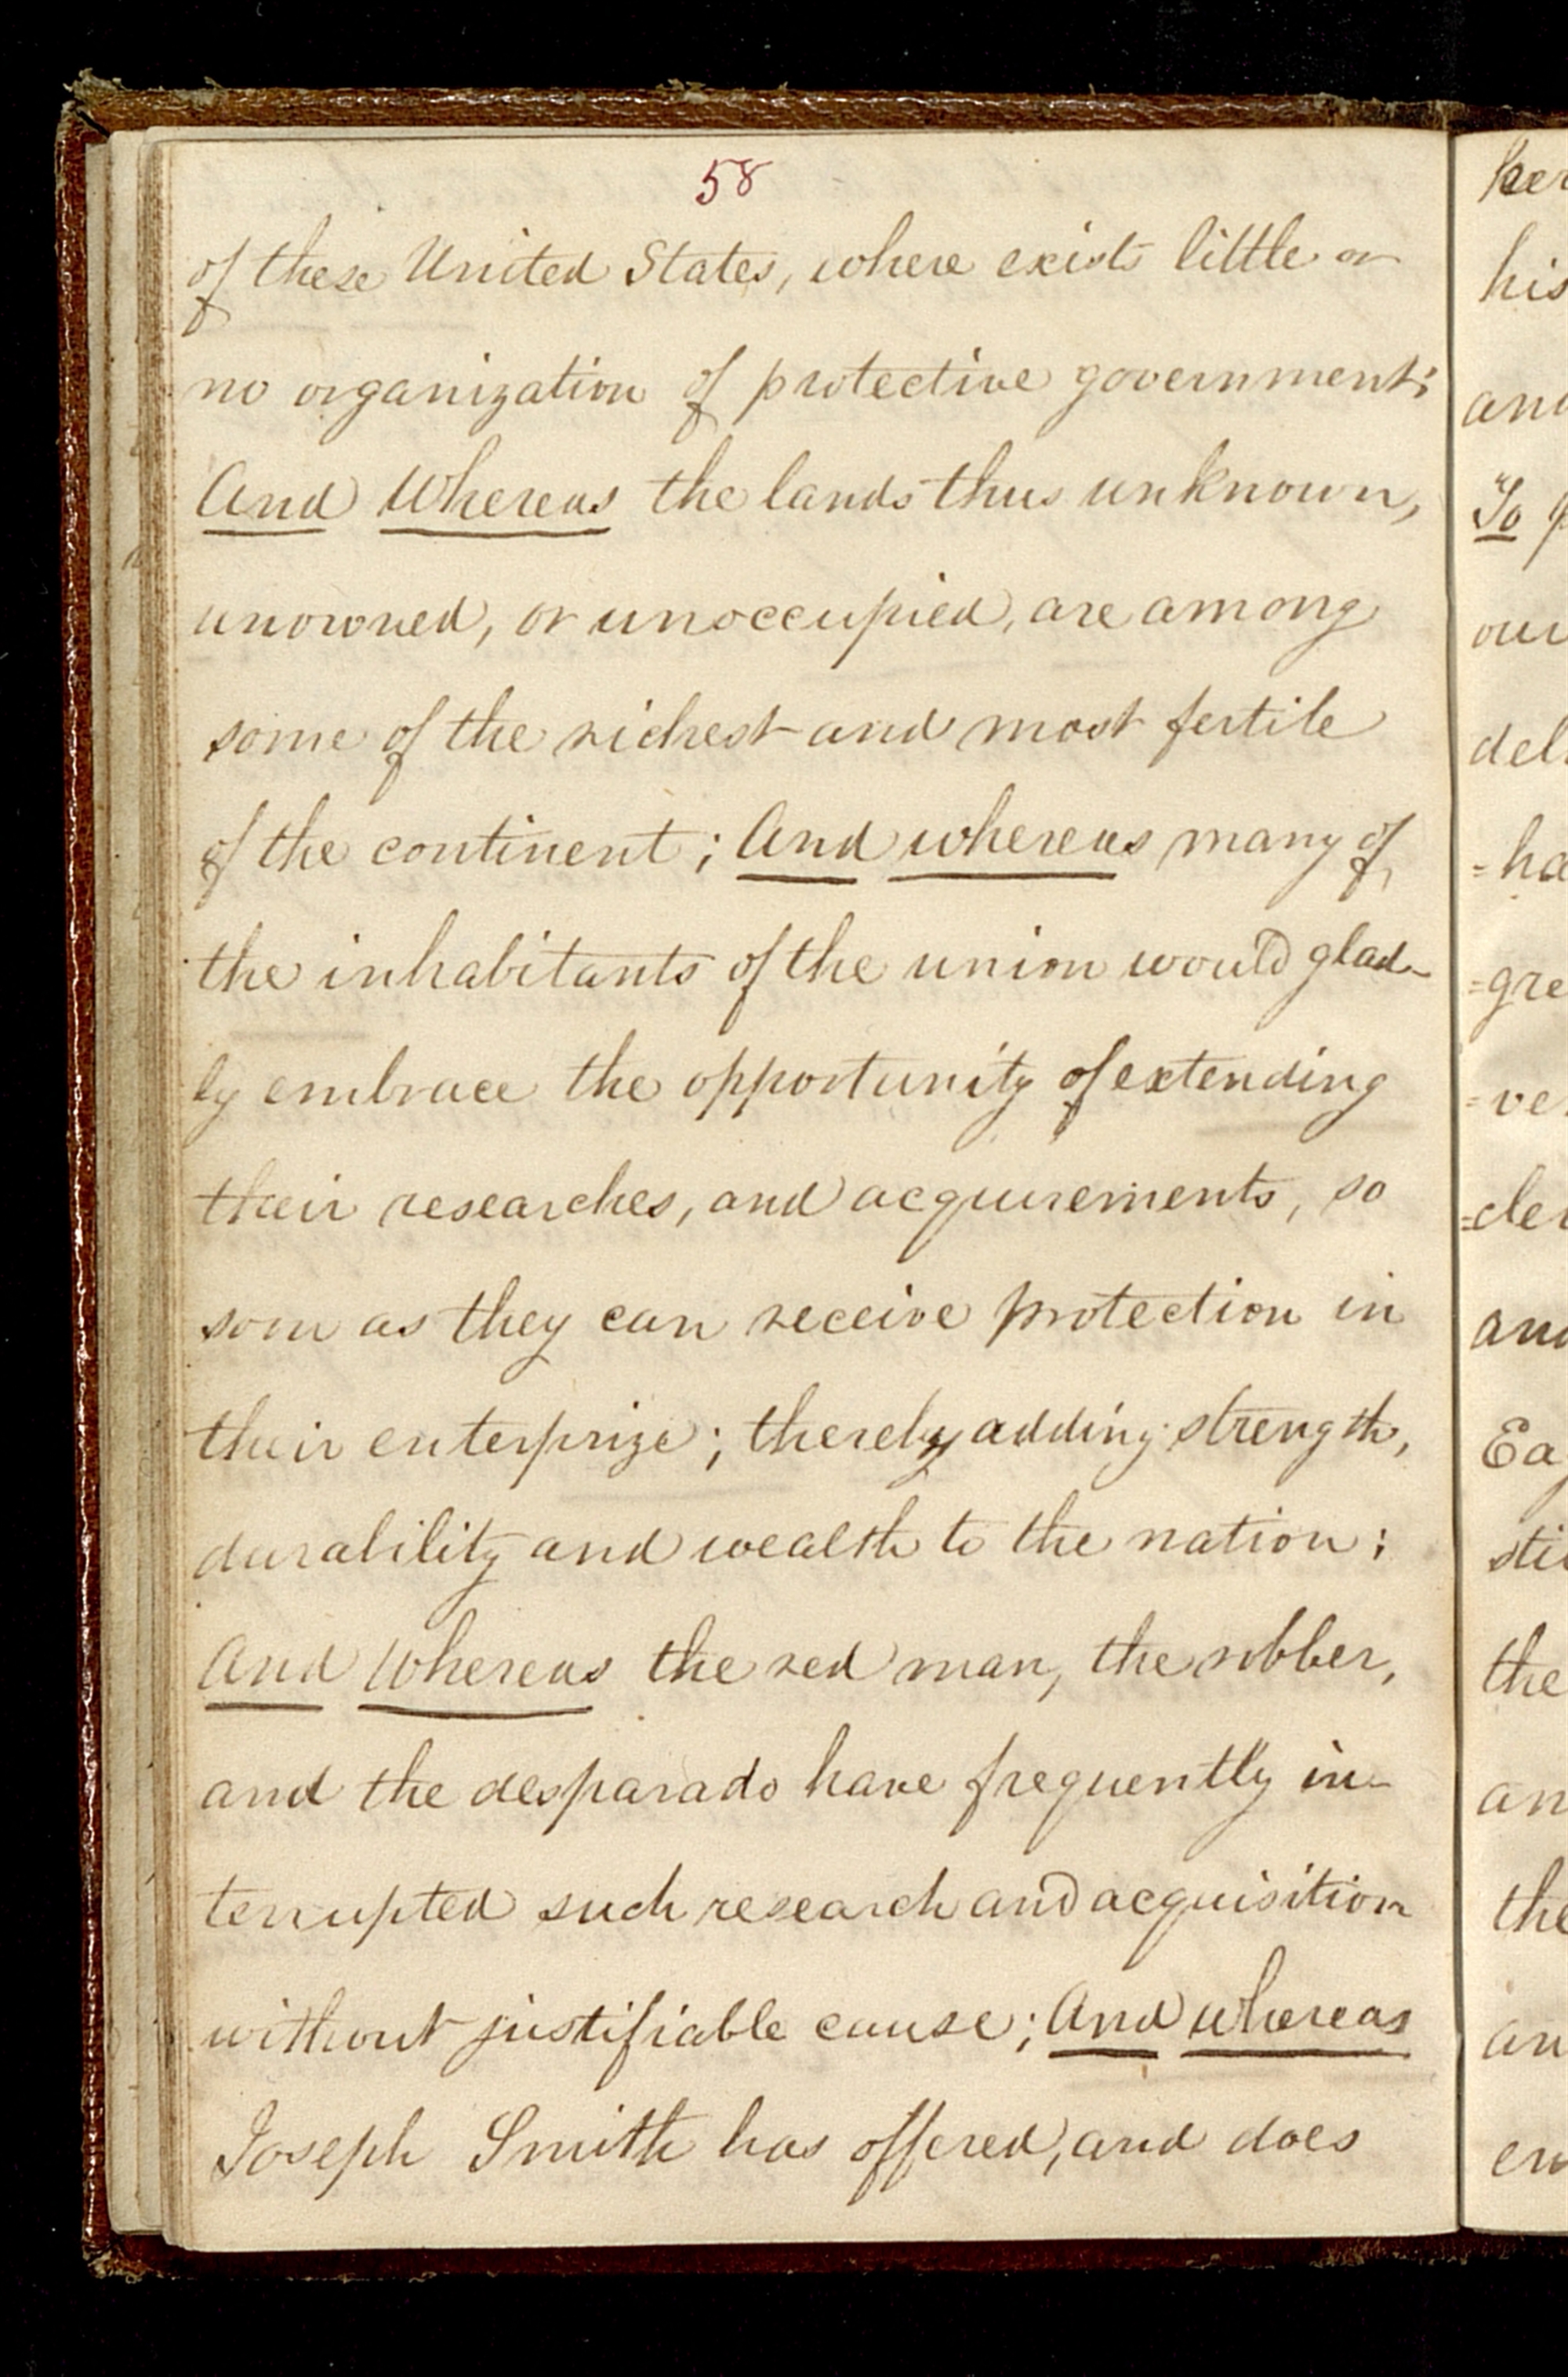 58
of these United States, where exists little or
no organization of protective government;
And Whereas the lands thus unknown,
unowned, or unoccupied, are among
some of the richest and most fertile
of the continent; And whereas many of
the inhabitants of the union would glad-
ly embrace the opportunity of extending
their researches, and acquirements, so
soon as they can receive protection in
their enterprize; thereby adding strength,
durability and wealth to the nation;
And Whereas the red man, the robber,
and the desparado have frequently in-
terrupted such research and acquisition
without justifiable cause; And whereas
Joseph Smith has offered, and does
her
his
and
"To
our
del
=ha
=gre
=ve
=der
and
Ea
sti
the
an
the
an
en